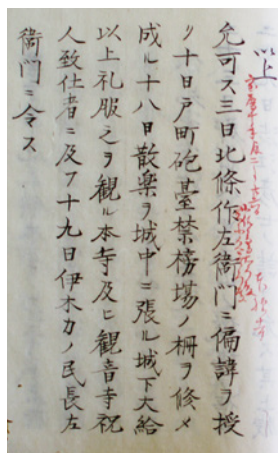 以上
允可ス三日北條作左衛門ニ偏諱ヲ授
ク十日戸町砲臺禁榜場ノ柵ヲ修メ
成ル十八日散楽ヲ城中ニ張ル城下大給
以上礼服之ヲ観ル本寺及ヒ観音寺祝
人致仕者ニ及フ十九日伊木力ノ民長左
衛門ニ令ス